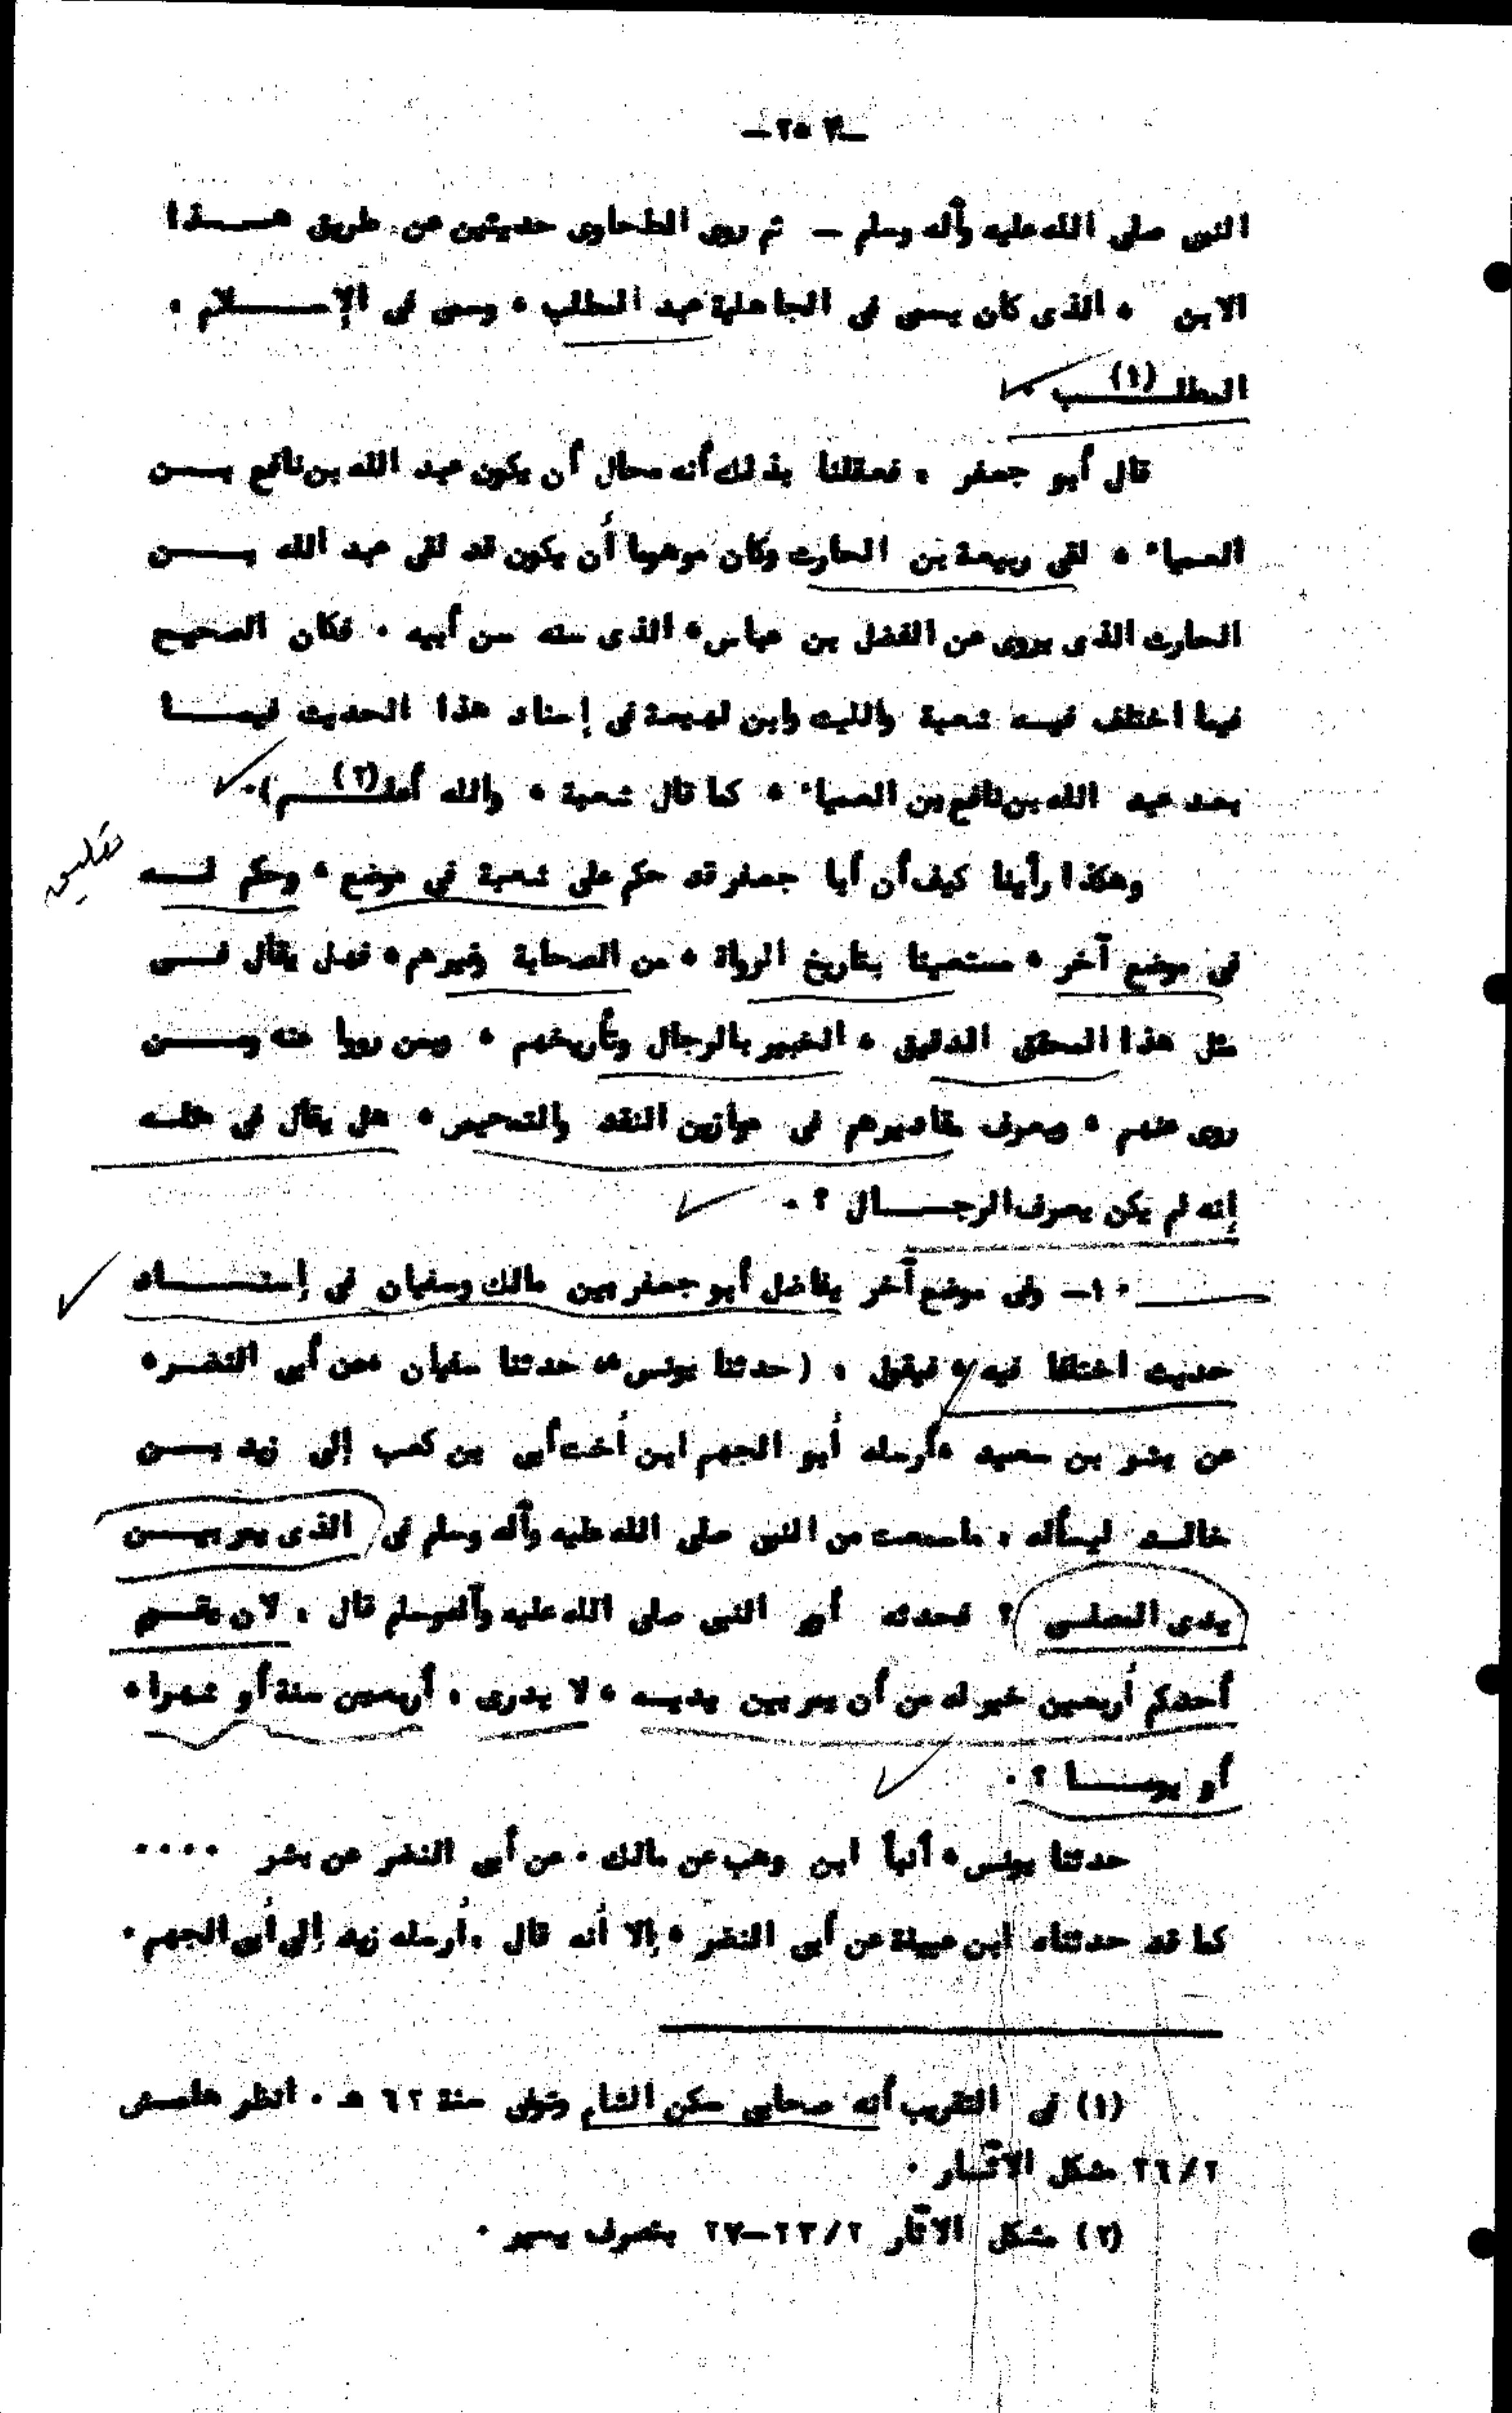 النبى صلى الله عليه وآله وسلم – ثم روى الطحاوى حديثين عن طريق هــــذا
الابن ، الذى كان يسمى فى الجاهلية عبد المطلب ، وسمى فى الإســـــلام ،
المطلــــب (١) .
قال أبو جعفر ، فعقلنا بذلك أنه محال أن يكون عبد الله بن نافع بـــن
العمياء ، لقى ربيعة بن الحارث وكان موهوما أن يكون قد لقى عبد الله بــــن
الحارث الذى يروى عن الفضل بن عباس، الذى سنه سن أبيه . فكان الصحيح
فيما اختلف فيــه شعبة والليث وابن لهيعة فى إسناد هذا الحديث فيمـــا
بعد عبد الله بن نافع بن العمياء ، كما قال شعبة ، والله أعلــــم (٢)).
وهكذا رأينا كيف أن أبا جعفر قد حكم على شعبة فى موضع ، وحكم لـــه
فى موضع آخر ، مستعينا بتاريخ الرواة ، من الصحابة وغيرهم ، فهل يقال فـــى
مثل هذا المحقق الدقيق ، الخبير بالرجال وتأريخهم ، ومن رووا عنه ومــــن
روى عنهم ، ويعرف مقاديرهم فى موازين النقد والتمحيص ، هل يقال فى مثلـــه
إنه لم يكن يعرف الرجــــال ؟ .
١٠– وفى موضع آخر يفاضل أبو جعفر بين مالك وسفيان فى إسنــــاد
حديث اختلفا فيه ، فيقول ، (حدثنا يونس ، حدثنا سفيان ،عن أبى النضــر،
عن بشر بن سعيد ،أرسله أبو الجهم ابن أخت أبى بن كعب إلى زيد بـــن
خالــد ليسأله ، ماسمعت من النبى صلى الله عليه وآله وسلم فى الذى يمر بيـــن
يدى المصلــى ؟ فحدثه أن النبى صلى الله عليه وآله وسلم قال ، لان يقــوم
أحدكم أربعين خير له من أن يمر بين يديــه ، لا يدرى ، أربعين سنة أو شهرا ،
أو يومــــا ؟ .
حدثنا يونس ، أنبأ ابن وهب عن مالك ، عن أبى النضر عن بشر ....
كما قد حدثناه ابن عيينة عن أبى النضر ، إلا أنه قال ،أرسله زيد إلى أبى الجهم .
(١) فى التقريب أنه صحابى سكن الشام وتوفى سنة ٦٢ هـ . انظر هامـش
٢٦/٢ مشكل الآثــار .
(٢) مشكل الآثار ٢٣/٢–٢٧ بتصرف يسير .